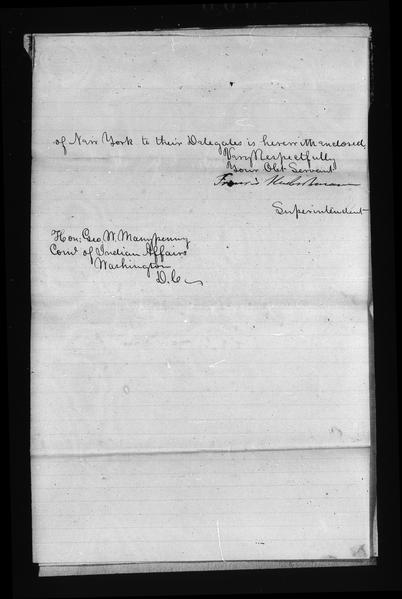 of New York to their Delegates is herewith enclosed,
Very Respectfully
Your Obt Servant
Francis Huebschmann
Superintendent
Hon: Geo. W. Manypenny
Com'r of Indian Affairs
Washington
D. C.